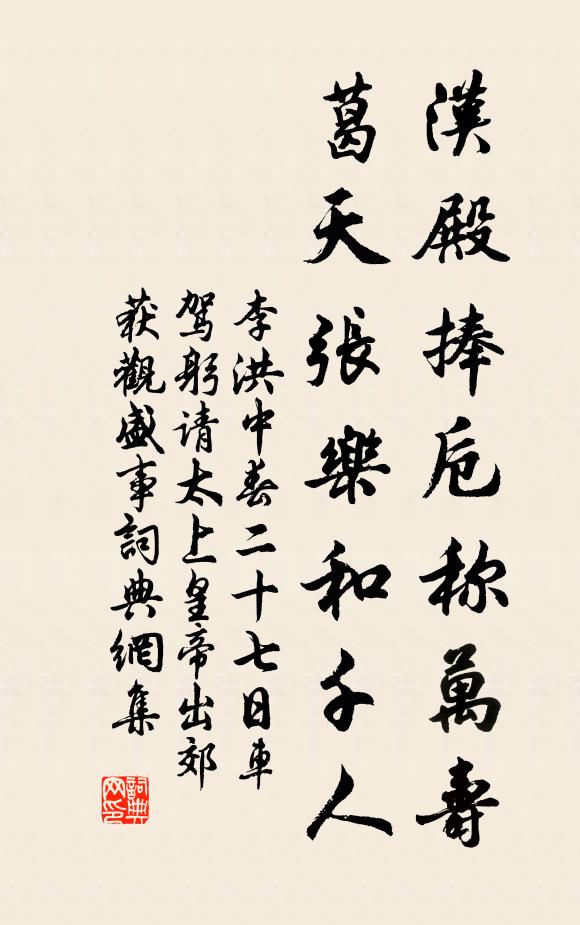 漢殿捧卮称萬壽
葛天張樂和千人
李洪中春二十七日車
駕躬请太上皇帝出郊
获觀盛事詞典網集
詞典
网印